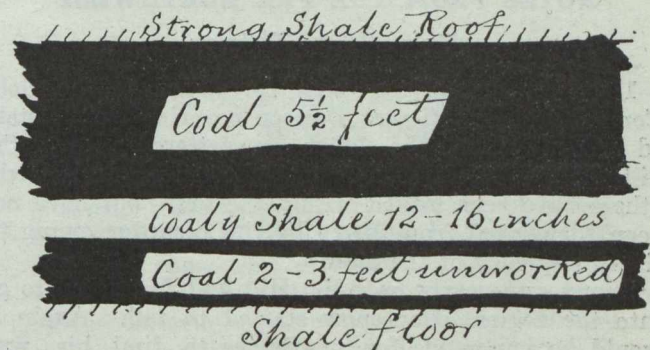 Strong Shale Roof
Coal 5½ feet
Coaly Shale 12-16 inches
Coal 2-3 feet unworked
Shale floor